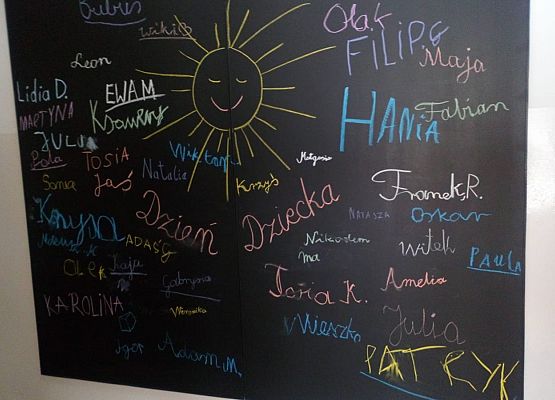 Bubuś
Wiktib
Leon
Lidia D.
EWA M
MARTYNA
Ksawery
JULIA
Pola
TOSIA
Wiktoria
Natalia
Sonia
Jaś
Krzyś
Małgosia
Olaf
FILIP G
Maja
HANIA
Fabian
Franek R.
NATASZA
Oskar
Dzień
Dziecka
ADAŚ G
Olek
Kaja
Gabrysia
Weronika
KAROLINA
Igor
Adam M.
Nikodem
ma
Witek
PAULA
Tosia K.
Amelia
Mieszko
Julia
PATRYK